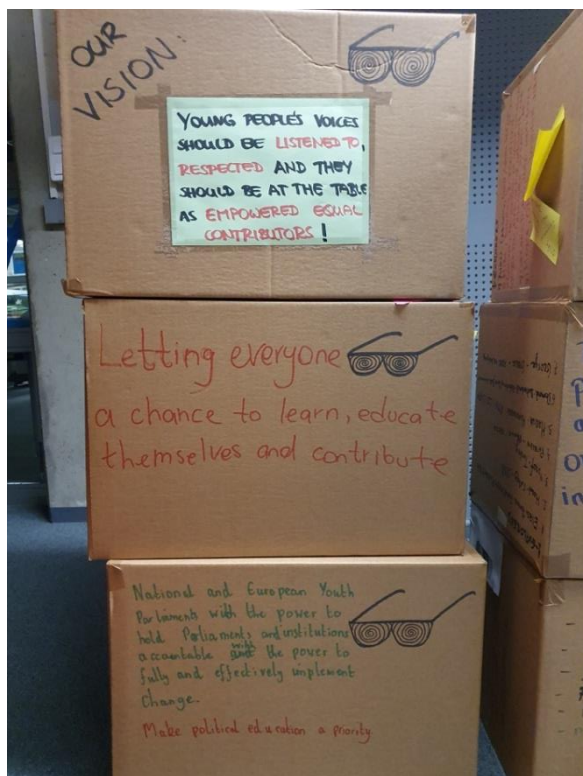 OUR
VISION:
YOUNG PEOPLE'S VOICES
SHOULD BE LISTENED TO,
RESPECTED AND THEY
SHOULD BE AT THE TABLE
AS EMPOWERED EQUAL
CONTRIBUTORS!
Letting everyone
a chance to learn, educate
themselves and contribute
National and European Youth
Parliaments with the power to
hold Parliaments and institutions
accountable with the power to
fully and effectively implement
Change.
Make political education a priority.